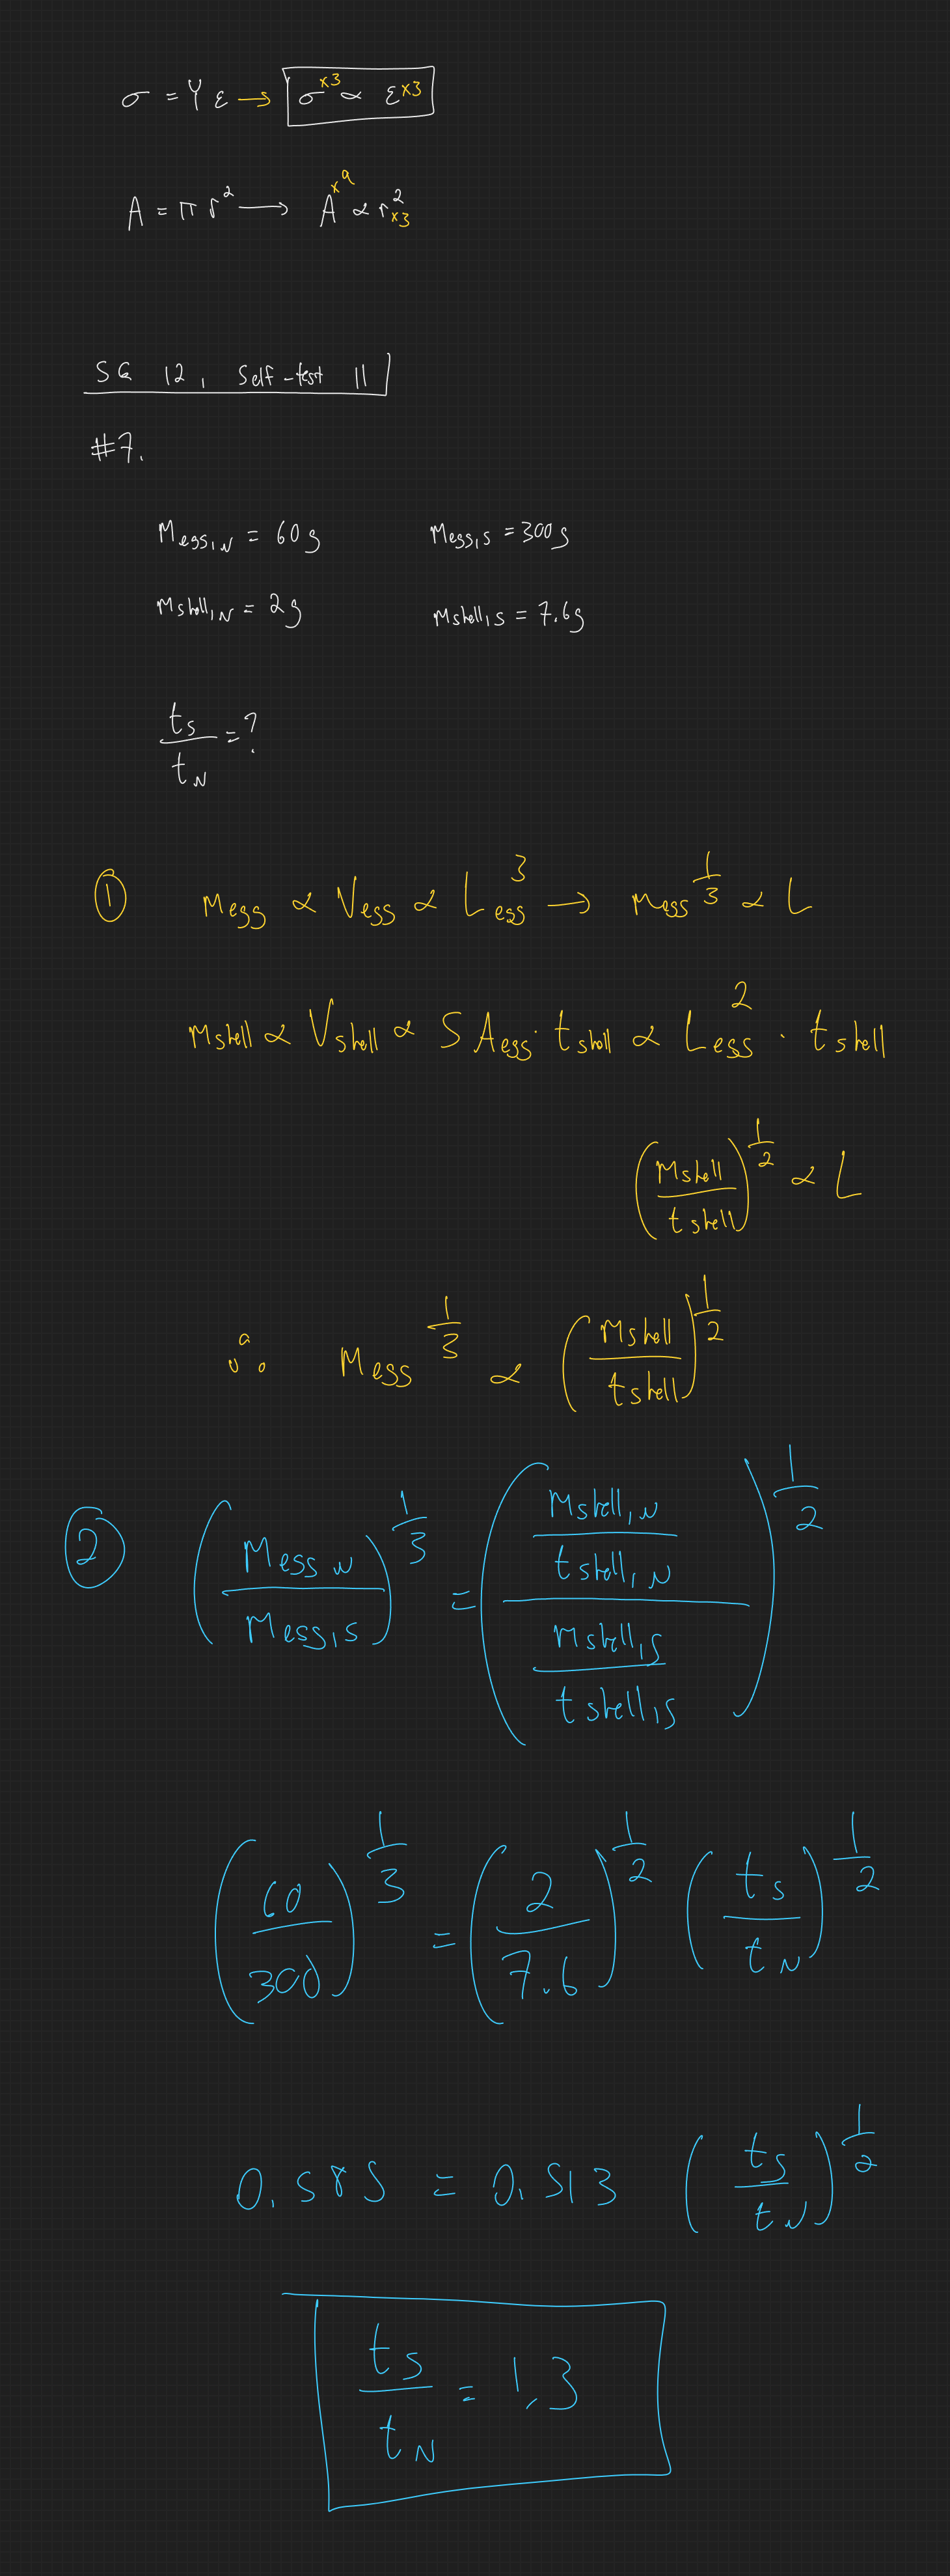 σ = Y ε → σ^x3 ∝ ε^x3
A = π r² → A^x9 ∝ r²x3
SG 12, Self-test 11
#7.
Megg,N = 60g    Megg,S = 300g
Mshell,N = 2g    Mshell,S = 7.6g
ts/tN = ?
① Megg ∝ Vegg ∝ Legg³ → Megg^(1/3) ∝ L
Mshell ∝ Vshell ∝ SAegg · tshell ∝ Legg² · tshell
(Mshell/tshell)^(1/2) ∝ L
∴ Megg^(1/3) ∝ (Mshell/tshell)^(1/2)
② (Megg N/Megg,S)^(1/3) = ((Mshell,N/tshell,N)/(Mshell,S/tshell,S))^(1/2)
(60/300)^(1/3) = (2/7.6)^(1/2) (ts/tN)^(1/2)
0.585 = 0.513 (ts/tN)^(1/2)
ts/tN = 1.3